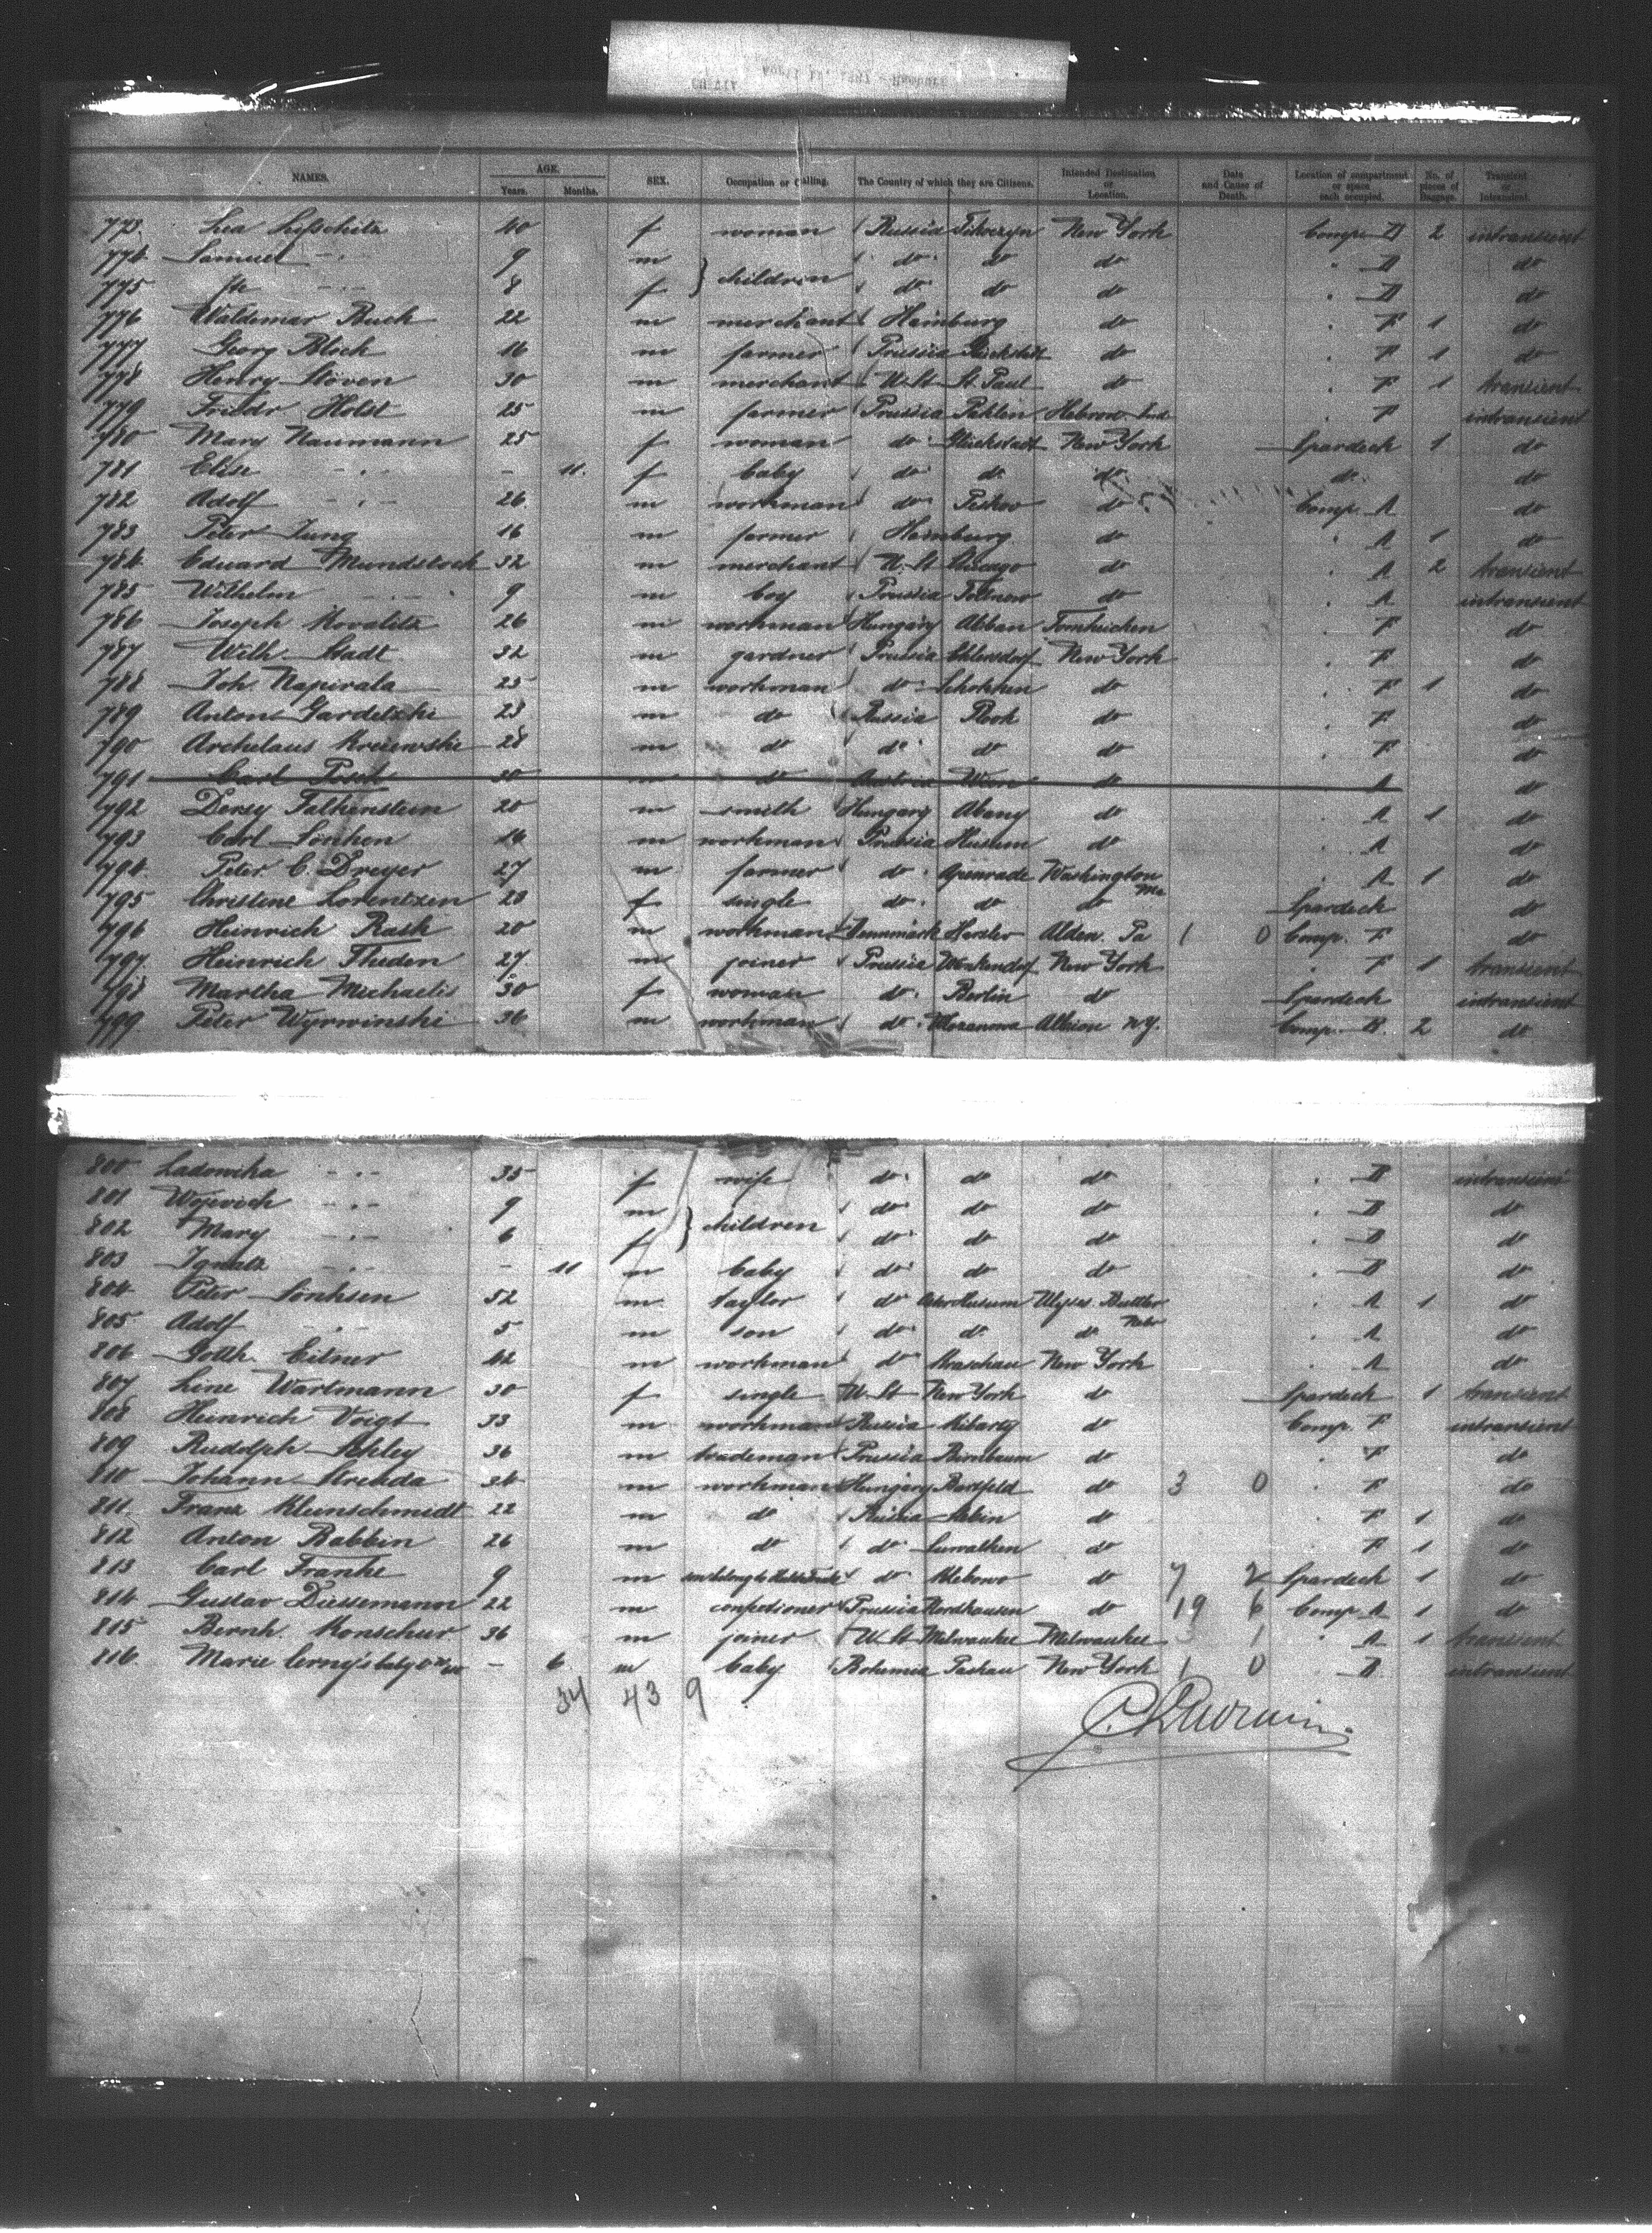 NAMES. AGE. Years. Months. SEX. Occupation or Calling. The Country of which they are Citizens. Intended Destination or Location. Date and Cause of Death. Location of compartment or space each occupied. No. of pieces of Baggage. Transient or Intransient.
773. Lea Lifschitz 40 f woman Russia New York Comp. D 2 intransient
774 Samuel -"- 9 m } children do do do " D do
775 -"- 8 f do do do " D do
776 Waldemar Buch 22 m merchant Hamburg do " F 1 do
777 Georg Bloch 16 m farmer Prussia Glückstadt do " F 1 do
778 Henry Stöven 30 m merchant U. St St. Paul do " F 1 transient
779 Friedr Holst 25 m farmer Prussia Pahlen Hebron Ind. " F intransient
780 Mary Naumann 25 f woman do Glückstadt New York Spardeck 1 do
781 Elise -"- - 11. f baby do do do do do
782 Adolf -"- 26 m workman do do Comp. A do
783 Peter Jung 16 m farmer Hamburg do " A 1 do
784 Eduard Mundstock 32 m merchant U. St Chicago do " A 2 transient
785 Wilhelm -"- 9 m boy Prussia do " A intransient
786 Joseph Kovalitz 26 m workman Hungary Abban " F do
787 Wilh. Stadt 32 m gardner Prussia New York " F do
788 Joh. Napirala 25 m workman do Schokken do " F 1 do
789 Anton Gardetzki 23 m do Russia Plock do " F do
790 Archelaus Kraiewski 28 m do do do do " F do
791 Carl Posch 30 m do Austria Wien do A do
792 Falkenstein 20 m smith Hungary Abany do " A 1 do
793 Carl Lönhen 16 m workman Prussia Husum do " A do
794 Peter C. Dreyer 27 m farmer do Apenrade Washington " A 1 do
795 Christine Lorentzen 28 f single do do do Spardeck do
796 Heinrich Rask 20 m workman Dennmark Alden. Pa 1 0 Comp. F do
797 Heinrich Theden 27 m joiner Prussia New York " F 1 transient
798 Martha Michaelis 30 f woman do Berlin do Spardeck intransient
799 Peter Wyrwinski 36 m workman do Albion N.Y. Comp. B. 2 do
800 Ladowika -"- 35 f wife do do do " B intransient
801 Wojewich -"- 9 m } children do do do " B do
802 Mary -"- 6 f do do do " B do
803 Ignatz -"- - 11 m baby do do do " B do
804 Peter Sönksen 52 m taylor do Ulyses. Buttler Nebr " A 1 do
805 Adolf -"- 5 m son do do do " A do
806 Gotth. Eitner 42 m workman do New York " A do
807 Line Wartmann 30 f single U. St New York do Spardeck 1 transient
808 Heinrich Voigt 33 m workman Russia do Comp. F intransient
809 Rudolph Schley 36 m trademan Prussia Birnbaum do " F do
810 Johann 34 m workman Hungary Bartfeld do 3 0 " F do
811. Franz Kleinschmidt 22 m do do " F 1 do
812 Anton Babbin 26 m do do do " F 1 do
813 Carl Franke 9 m do do 7 Spardeck 1 do
814 Gustav Dussemann 22 m confectioner Prussia Nordhausen do 19 6 Comp. A 1 do
815 Bernh. Konschur 36 m joiner U. St Milwaukee Milwaukee 3 1 " A 1 transient
816. Marie Cerny's baby - 6 m baby Bohemia New York 1 0 " B intransient
34 43 9